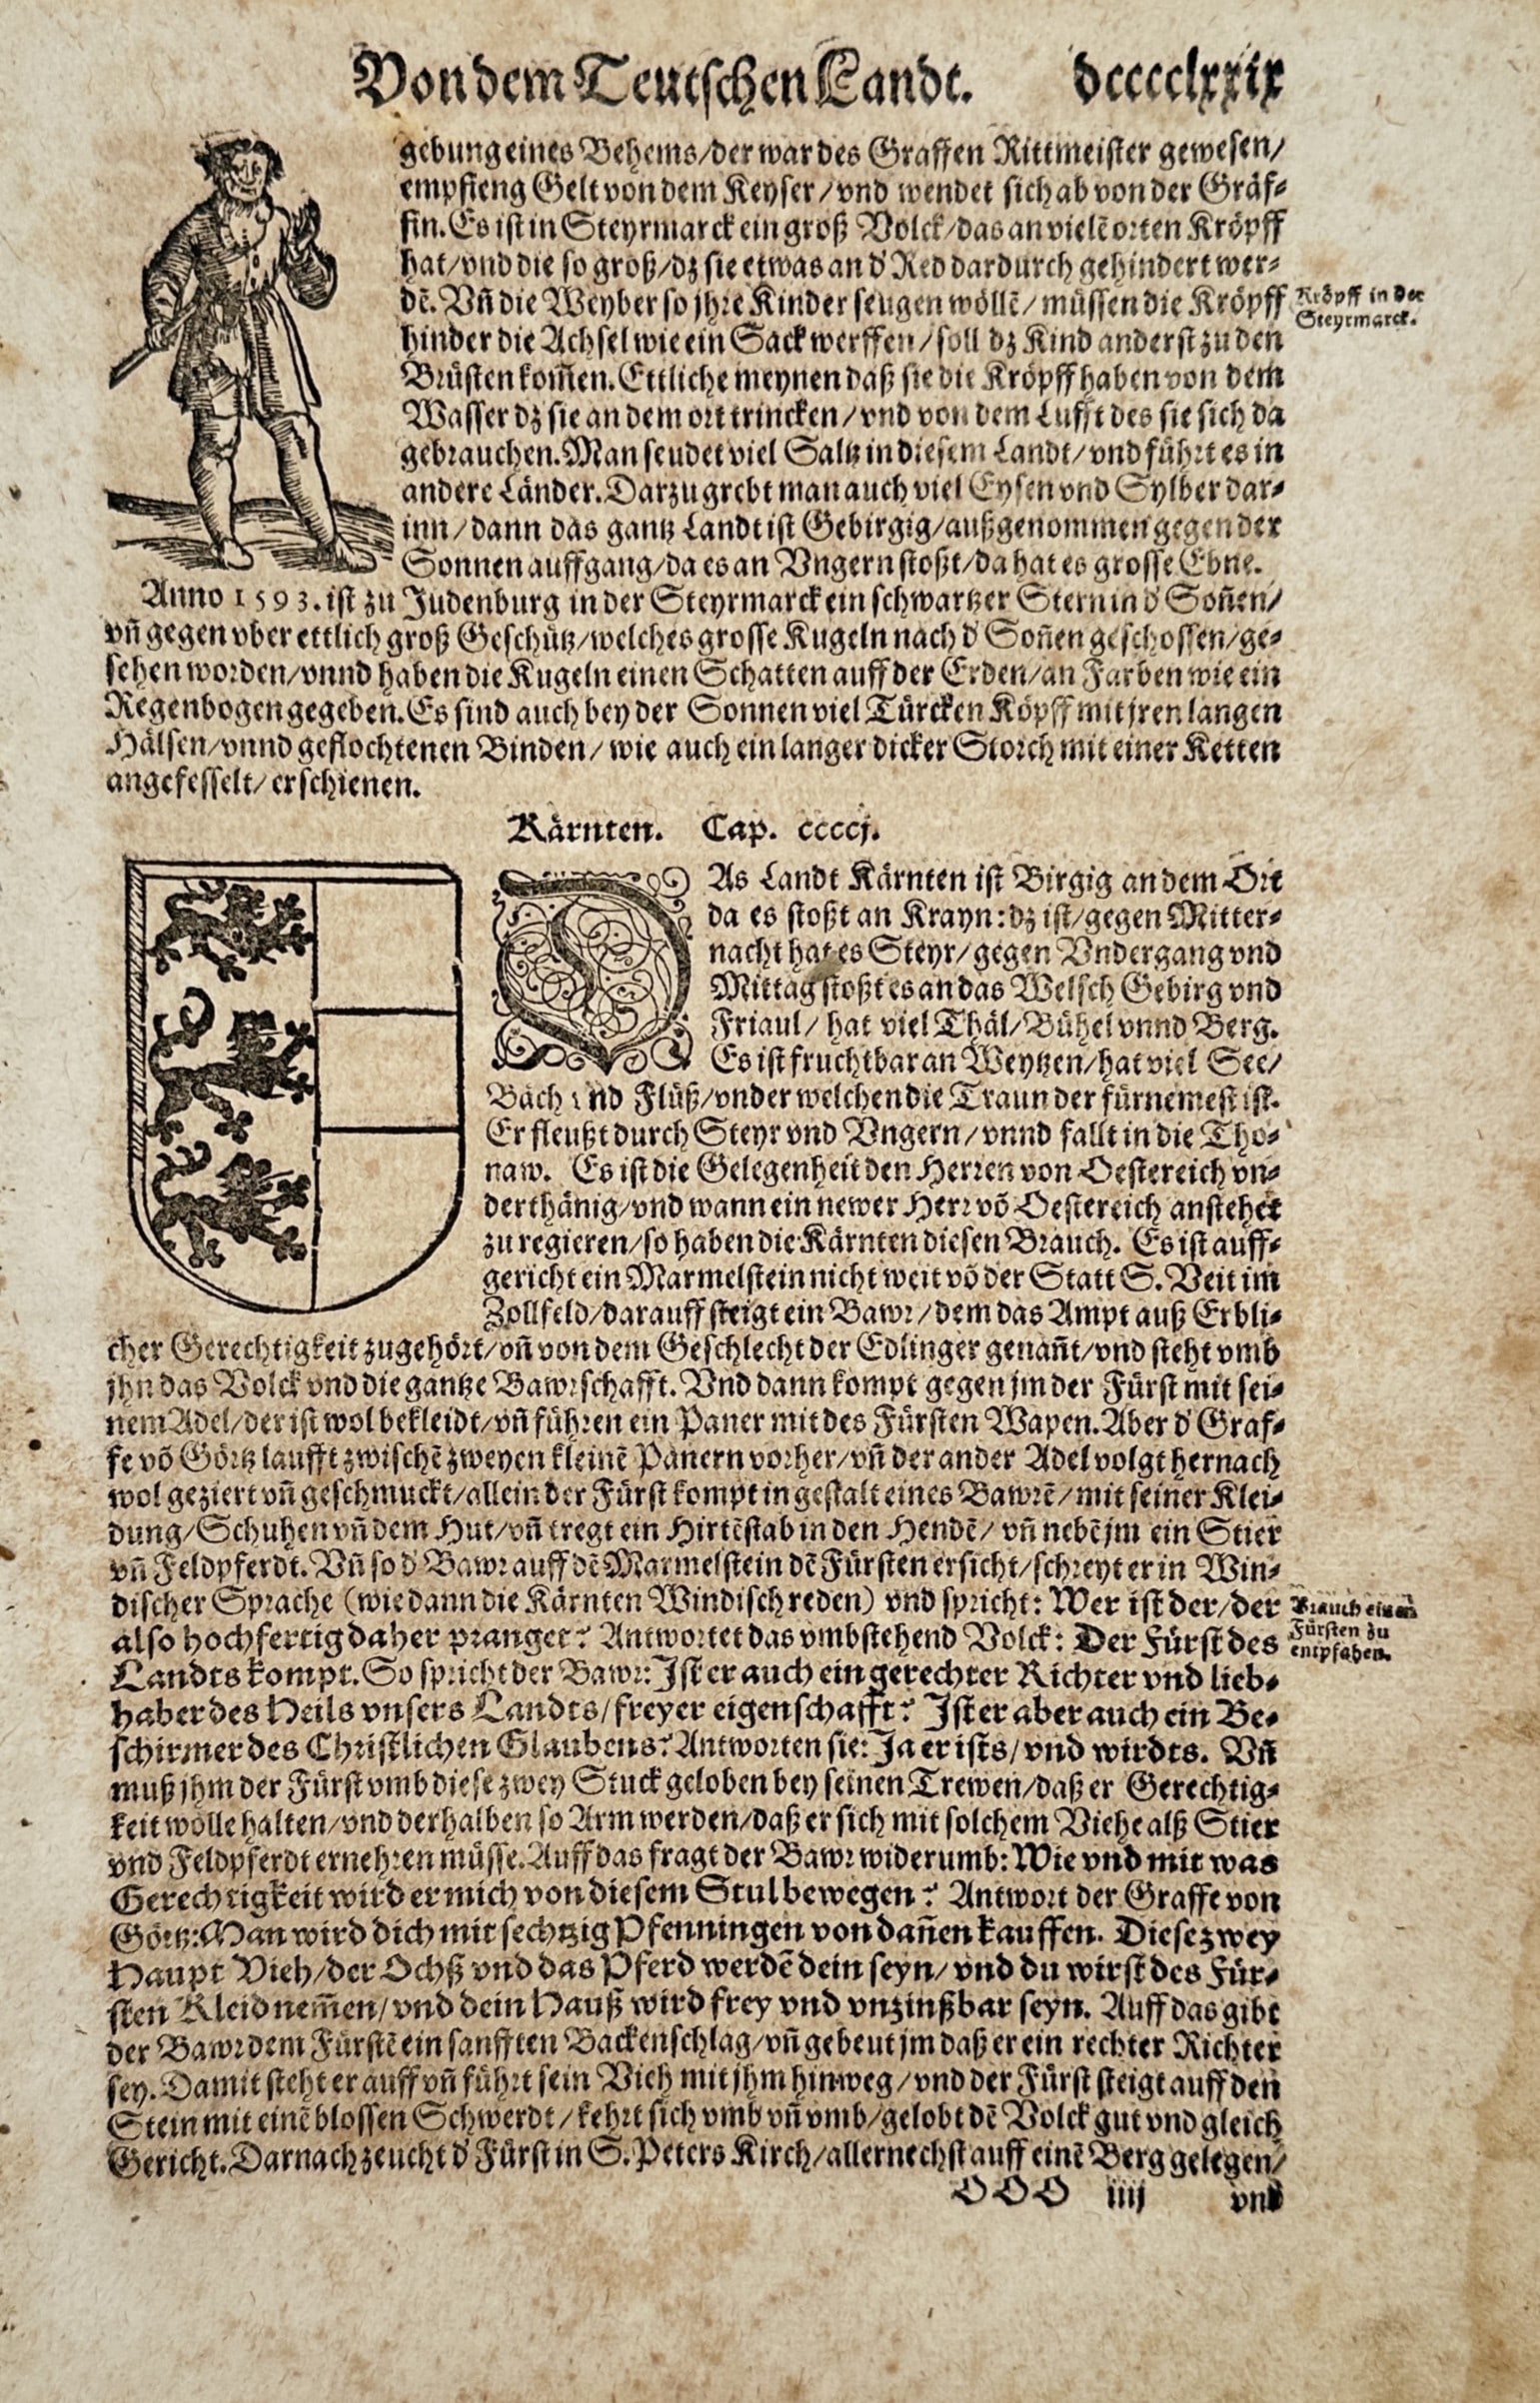 Von dem Teutschen Landt. dcccclxxix
gebung eines Behems/der war des Graffen Rittmeister gewesen/
empfieng Gelt von dem Keyser/vnd wendet sich ab von der Gräf-
fin. Es ist in Steyrmarck ein groß Volck/das an vielē orten Kröpff
hat/vnd die so groß/dz sie etwas an d' Red dardurch gehindert wer-
dē. Vñ die Weyber so jhre Kinder seugen wöllē/müssen die Kröpff
Kröpff in der
Steyrmarck.
hinder die Achsel wie ein Sack werffen/soll dz Kind anderst zu den
Brüsten kom̄en. Ettliche meynen daß sie die Kröpff haben von dem
Wasser dz sie an dem ort trincken/vnd von dem Lufft des sie sich da
gebrauchen. Man seudet viel Saltz in diesem Landt/vnd führt es in
andere Länder. Darzu grebt man auch viel Eysen vnd Sylber dar-
inn/dann das gantz Landt ist Gebirgig/außgenommen gegen der
Sonnen auffgang/da es an Vngern stoßt/da hat es grosse Ebne.
Anno 1593. ist zu Judenburg in der Steyrmarck ein schwartzer Stern in d' Soñen/
vñ gegen vber ettlich groß Geschütz/welches grosse Kugeln nach d' Soñen geschossen/ge-
sehen worden/vnnd haben die Kugeln einen Schatten auff der Erden/an Farben wie ein
Regenbogen gegeben. Es sind auch bey der Sonnen viel Türcken Köpff mit jren langen
Hälsen/vnnd geflochtenen Binden/wie auch ein langer dicker Storch mit einer Ketten
angefesselt/erschienen.
Kärnten. Cap. ccccj.
DAs Landt Kärnten ist Birgig an dem Ort
da es stoßt an Krayn: dz ist/gegen Mitter-
nacht hat es Steyr/gegen Vndergang vnd
Mittag stoßt es an das Welsch Gebirg vnd
Friaul/hat viel Thäl/Bühel vnnd Berg.
Es ist fruchtbar an Weytzen/hat viel See/
Bäch vnd Flüß/vnder welchen die Traun der fürnemest ist.
Er fleußt durch Steyr vnd Vngern/vnnd fallt in die Tho-
naw. Es ist die Gelegenheit den Herren von Oestereich vn-
derthänig/vnd wann ein newer Herr vō Oestereich anstehet
zu regieren/so haben die Kärnten diesen Brauch. Es ist auff-
gericht ein Marmelstein nicht weit vō der Statt S. Veit im
Zollfeld/darauff steigt ein Bawr/dem das Ampt auß Erbli-
cher Gerechtigkeit zugehört/vñ von dem Geschlecht der Edlinger genañt/vnd steht vmb
jhn das Volck vnd die gantze Bawrschafft. Vnd dann kompt gegen jm der Fürst mit sei-
nem Adel/der ist wol bekleidt/vñ führen ein Paner mit des Fürsten Wapen. Aber d' Graf-
fe vō Görtz laufft zwischē zweyen kleinē Panern vorher/vñ der ander Adel volgt hernach
wol geziert vñ geschmuckt/allein der Fürst kompt in gestalt eines Bawrē/mit seiner Klei-
dung/Schuhen vñ dem Hut/vñ tregt ein Hirtēstab in den Hendē/vñ nebē jm ein Stier
vñ Feldpferdt. Vñ so d' Bawr auff dē Marmelstein dē Fürsten ersicht/schreyt er in Win-
discher Sprache (wie dann die Kärnten Windisch reden) vnd spricht: Wer ist der/der
Brauch einen
Fürsten zu
entpfahen.
also hochfertig daher pranget? Antwortet das vmbstehend Volck: Der Fürst des
Landts kompt. So spricht der Bawr: Ist er auch ein gerechter Richter vnd lieb-
haber des Heils vnsers Landts/freyer eigenschafft? Ist er aber auch ein Be-
schirmer des Christlichen Glaubens? Antworten sie: Ja er ists/vnd wirdts. Vñ
muß jhm der Fürst vmb diese zwey Stuck geloben bey seinen Trewen/daß er Gerechtig-
keit wölle halten/vnd derhalben so Arm werden/daß er sich mit solchem Viehe alß Stier
vnd Feldpferdt ernehren müsse. Auff das fragt der Bawr widerumb: Wie vnd mit was
Gerechtigkeit wird er mich von diesem Stul bewegen? Antwort der Graffe von
Görtz: Man wird dich mit sechtzig Pfenningen von dañen kauffen. Diese zwey
Haupt Vieh/der Ochß vnd das Pferd werdē dein seyn/vnd du wirst des Für-
sten Kleid nem̄en/vnd dein Hauß wird frey vnd vnzinßbar seyn. Auff das gibt
der Bawr dem Fürstē ein sanfften Backenschlag/vñ gebeut jm daß er ein rechter Richter
sey. Damit steht er auff vñ führt sein Vieh mit jhm hinweg/vnd der Fürst steigt auff den
Stein mit einē blossen Schwerdt/kehrt sich vmb vñ vmb/gelobt dē Volck gut vnd gleich
Gericht. Darnach zeucht d' Fürst in S. Peters Kirch/allernechst auff einē Berg gelegen/
OOO iiij vnd